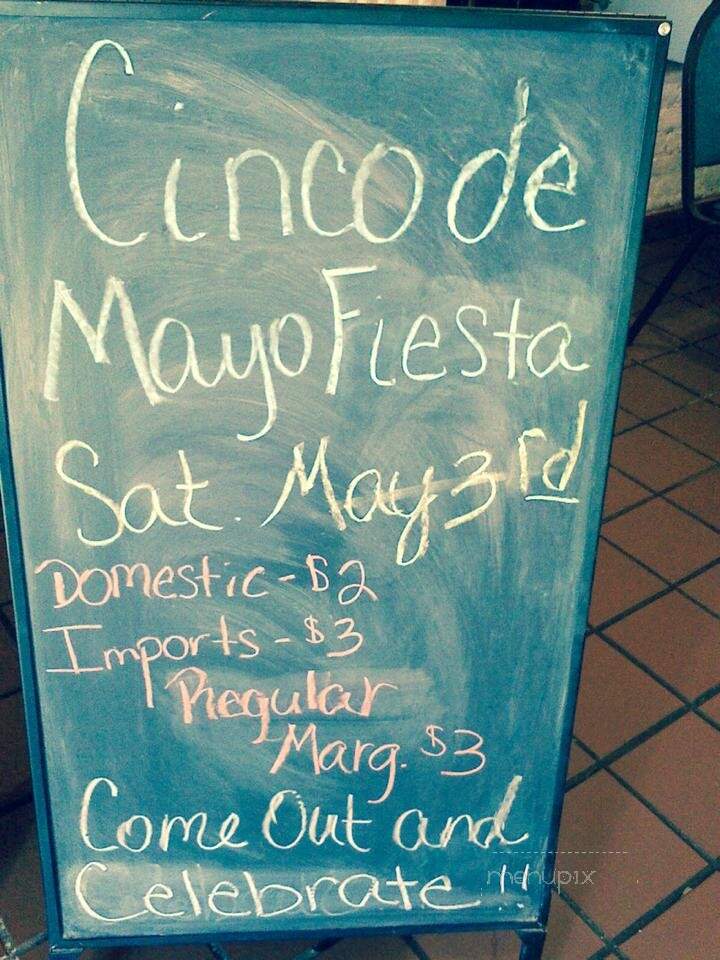 Cinco de
Mayo Fiesta
Sat. May 3rd
Domestic - $2
Imports - $3
Regular
Marg. $3
Come Out and
Celebrate!!
menupix